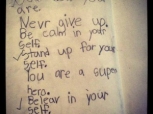 are.
Nevr give up.
Be calm in your
self.
Stand up for your
self.
You are a super
hero.
Belear in your
self.